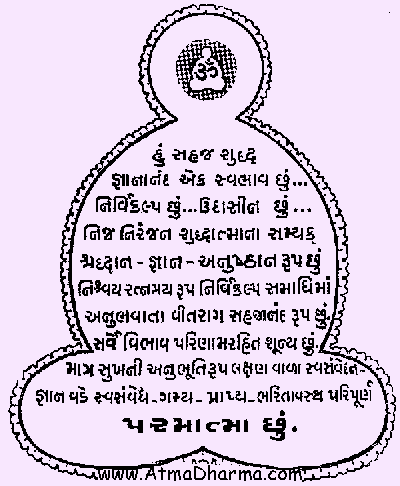 ૐ
હું સહજ શુદ્ધ
જ્ઞાનાનંદ એક સ્વભાવ છું...
નિર્વિકલ્પ છું...ઉદાસીન છું...
નિજ નિરંજન શુદ્ધાત્માના સમ્યક્
શ્રદ્ધાન - જ્ઞાન - અનુષ્ઠાન રૂપ છું
નિશ્ચય રત્નત્રય રૂપ નિર્વિકલ્પ સમાધિમાં
અનુભવાતા વીતરાગ સહજાનંદ રૂપ છું.
સર્વે વિભાવ પરિણામરહિત શૂન્ય છું.
માત્ર સુખની અનુભૂતિરૂપ લક્ષણ વાળા સ્વસંવેદન-
જ્ઞાન વડે સ્વસંવેદ્ય-ગમ્ય - પ્રાપ્ય-ભરિતાવસ્થ પરિપૂર્ણ
પરમાત્મા છું.
www.AtmaDharma.com